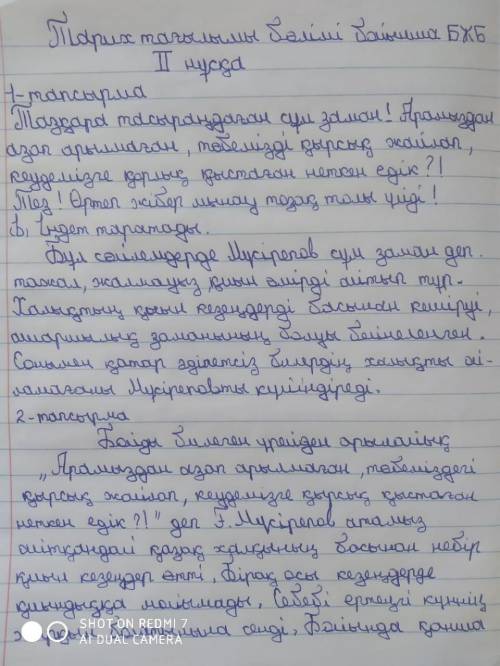 Тарих тағылымы бөлімі бойынша БЖБ
II нұсқа
1-тапсырма
Тазқара тасыраңдаған сұм заман! Арамыздан
азап арылмаған, төбемізді қырсық жайлап,
кеудемізге қорлық қыстаған неткен едік?!
Тез! Өртеп жібер мынау тозақ толы үйді!
Ы, Індет таратады.
Бұл сөйлемдерде Мүсірепов сұм заман деп
тажал, жалмауыз қиын өмірді айтып тұр.
Халықтың қиын кезеңдерді басынан кешіруі,
ашаршылық заманының болуы бейнеленген.
Сонымен қатар әділетсіз билердің халықты ой-
ламағаны Мүсіреповты күйіндіреді.
2-тапсырма
Бойды билеген үрейден арылайық
„Арамыздан азап арылмаған, төбеміздегі
қырсық жайлап, кеудемізге қырсық қыстаған
неткен едік?!" деп Ғ. Мүсірепов атамыз
айтқандай қазақ халқының басынан небір
қиын кезеңдер өтті, Бірақ осы кезеңдерде
қиындыққа мойымады, Себебі ертеңгі күннің
жарқын болатынына сенді, Бойында қанша
SHOT ON REDMI 7
AI DUAL CAMERA